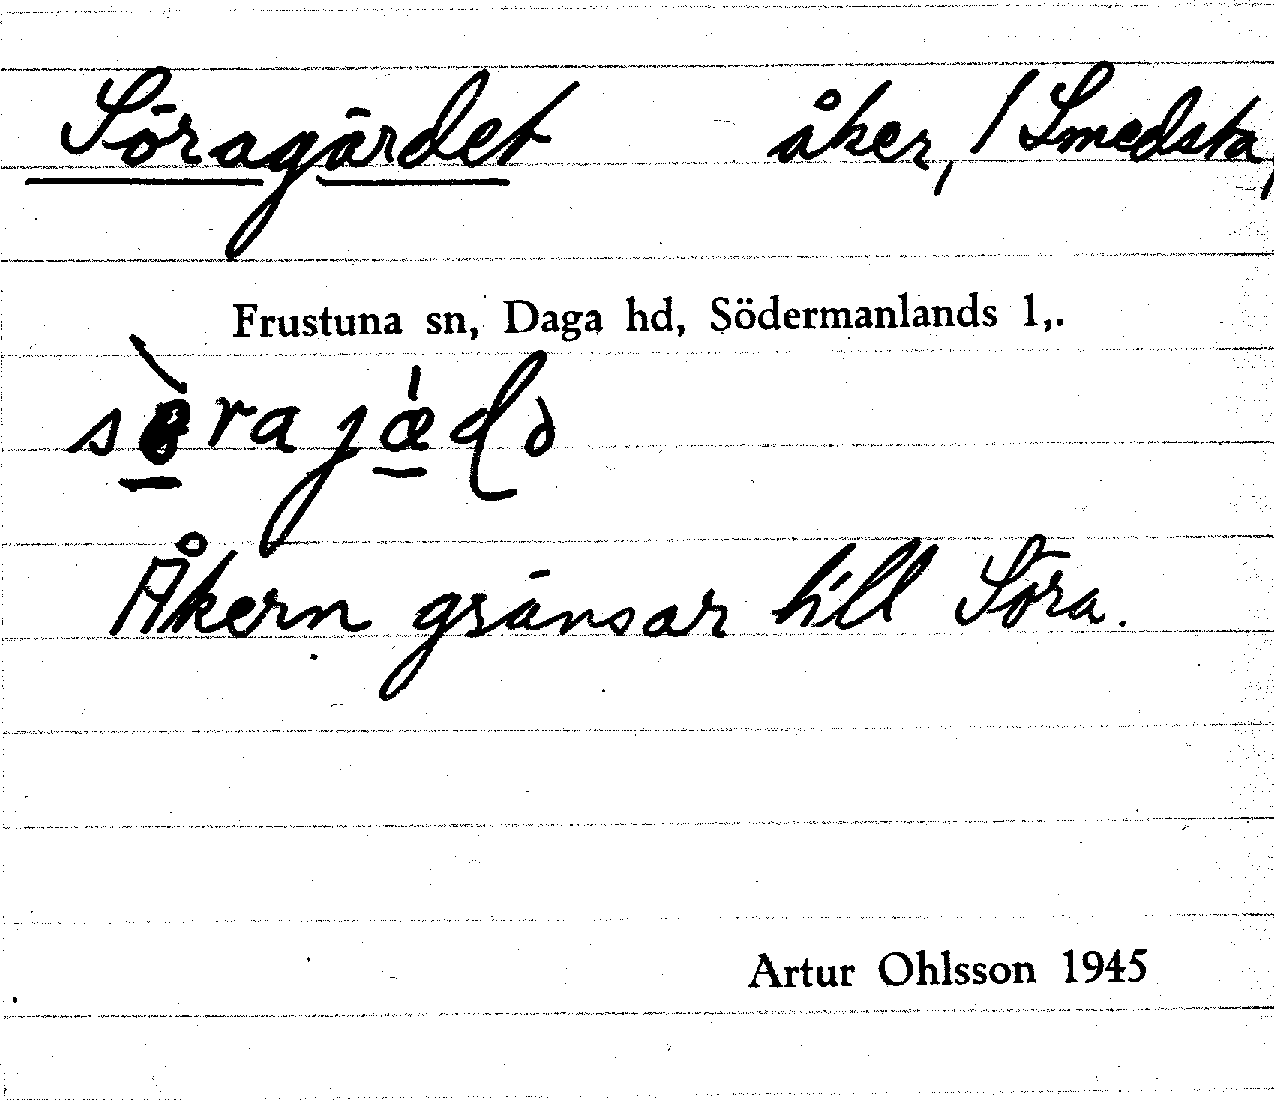 Söragärdet åker, / Smedsta,
Frustuna sn, Daga hd, Södermanlands l,.
Åkern gränsar till Söra.
Artur Ohlsson 1945